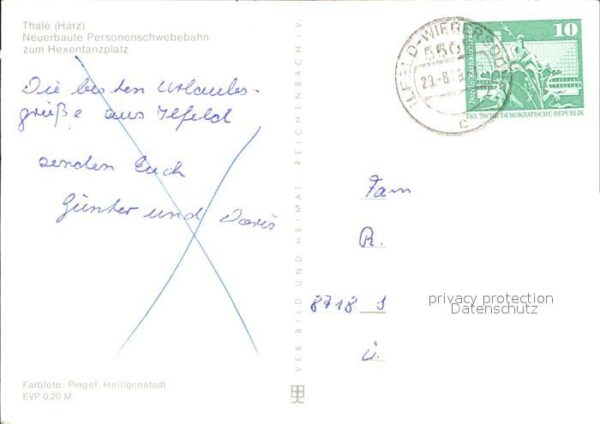 Thale (Harz)
Neuerbaute Personenschwebebahn
zum Hexentanzplatz
Die besten Urlaubs-
grüße aus Ilfeld
senden Euch
Günter und Doris
Farbfoto: Pingel, Heiligenstadt
EVP 0,20 M
VEB BILD UND HEIMAT · REICHENBACH i. V
ILFELD-WIEGERSDORF
c
10
DEUTSCHE DEMOKRATISCHE REPUBLIK
Fam
R.
8718 S
ü.
privacy protection
Datenschutz